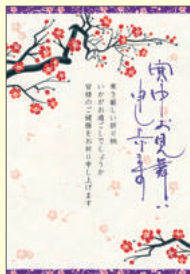 寒中お見舞い
申し上げます
寒さ厳しい折り柄
いかがお過ごしでしょうか
皆様のご健勝をお祈り申し上げます